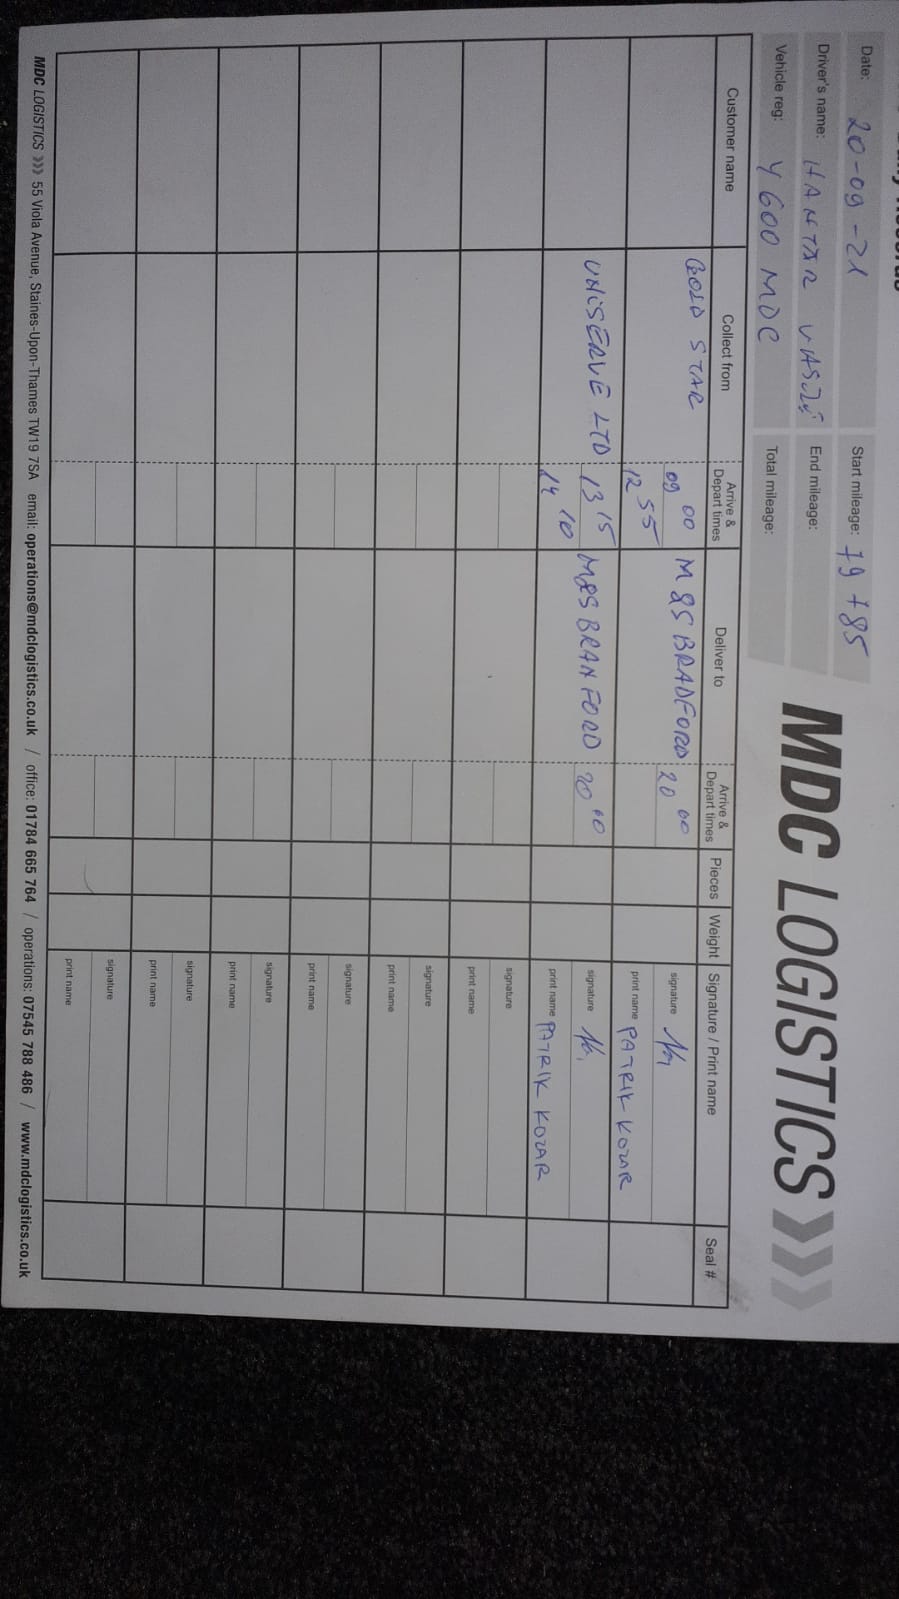 Date: 20-09-21
Start mileage: 79785
Driver's name: HANTAR VASILE
End mileage:
Vehicle reg: Y600 MDC
Total mileage:
MDC LOGISTICS
Customer name Collect from Arrive & Depart times Deliver to Arrive & Depart times Pieces Weight Signature / Print name Seal #
GOLD STAR 09 00 M&S BRADFORD 20 00 signature
12 55 print name PATRIK KOZAR
UNISERVE LTD 13 15 M&S BRANFORD 20 00 signature
14 10 print name PATRIK KOZAR
signature
print name
signature
print name
signature
print name
signature
print name
signature
print name
signature
print name
MDC LOGISTICS 55 Viola Avenue, Staines-Upon-Thames TW19 7SA email: operations@mdclogistics.co.uk / office: 01784 665 764 / operations: 07545 788 486 / www.mdclogistics.co.uk